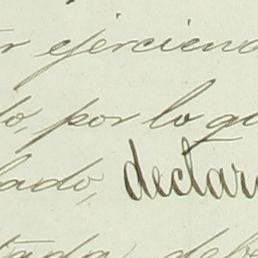 r ejerciend
do, por lo qu
lado, declar
tada debe